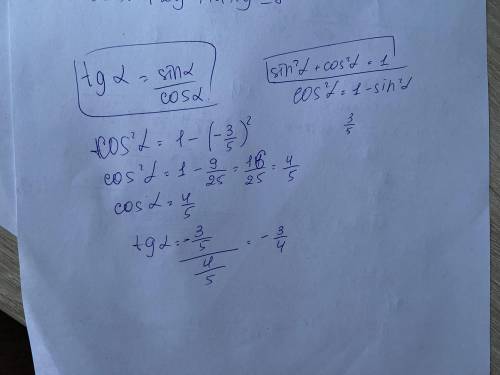 tg α = sinα / cosα
sin²α + cos²α = 1
cos²α = 1 - sin²α
3/5
cos²α = 1 - (-3/5)²
cos²α = 1 - 9/25 = 16/25 = 4/5
cos α = 4/5
tg α = -3/5 / 4/5 = -3/4